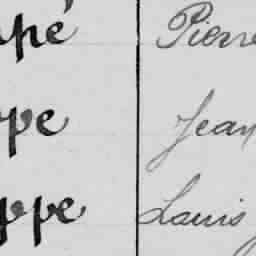 pé Pierre
pe Jean
ppe Louis